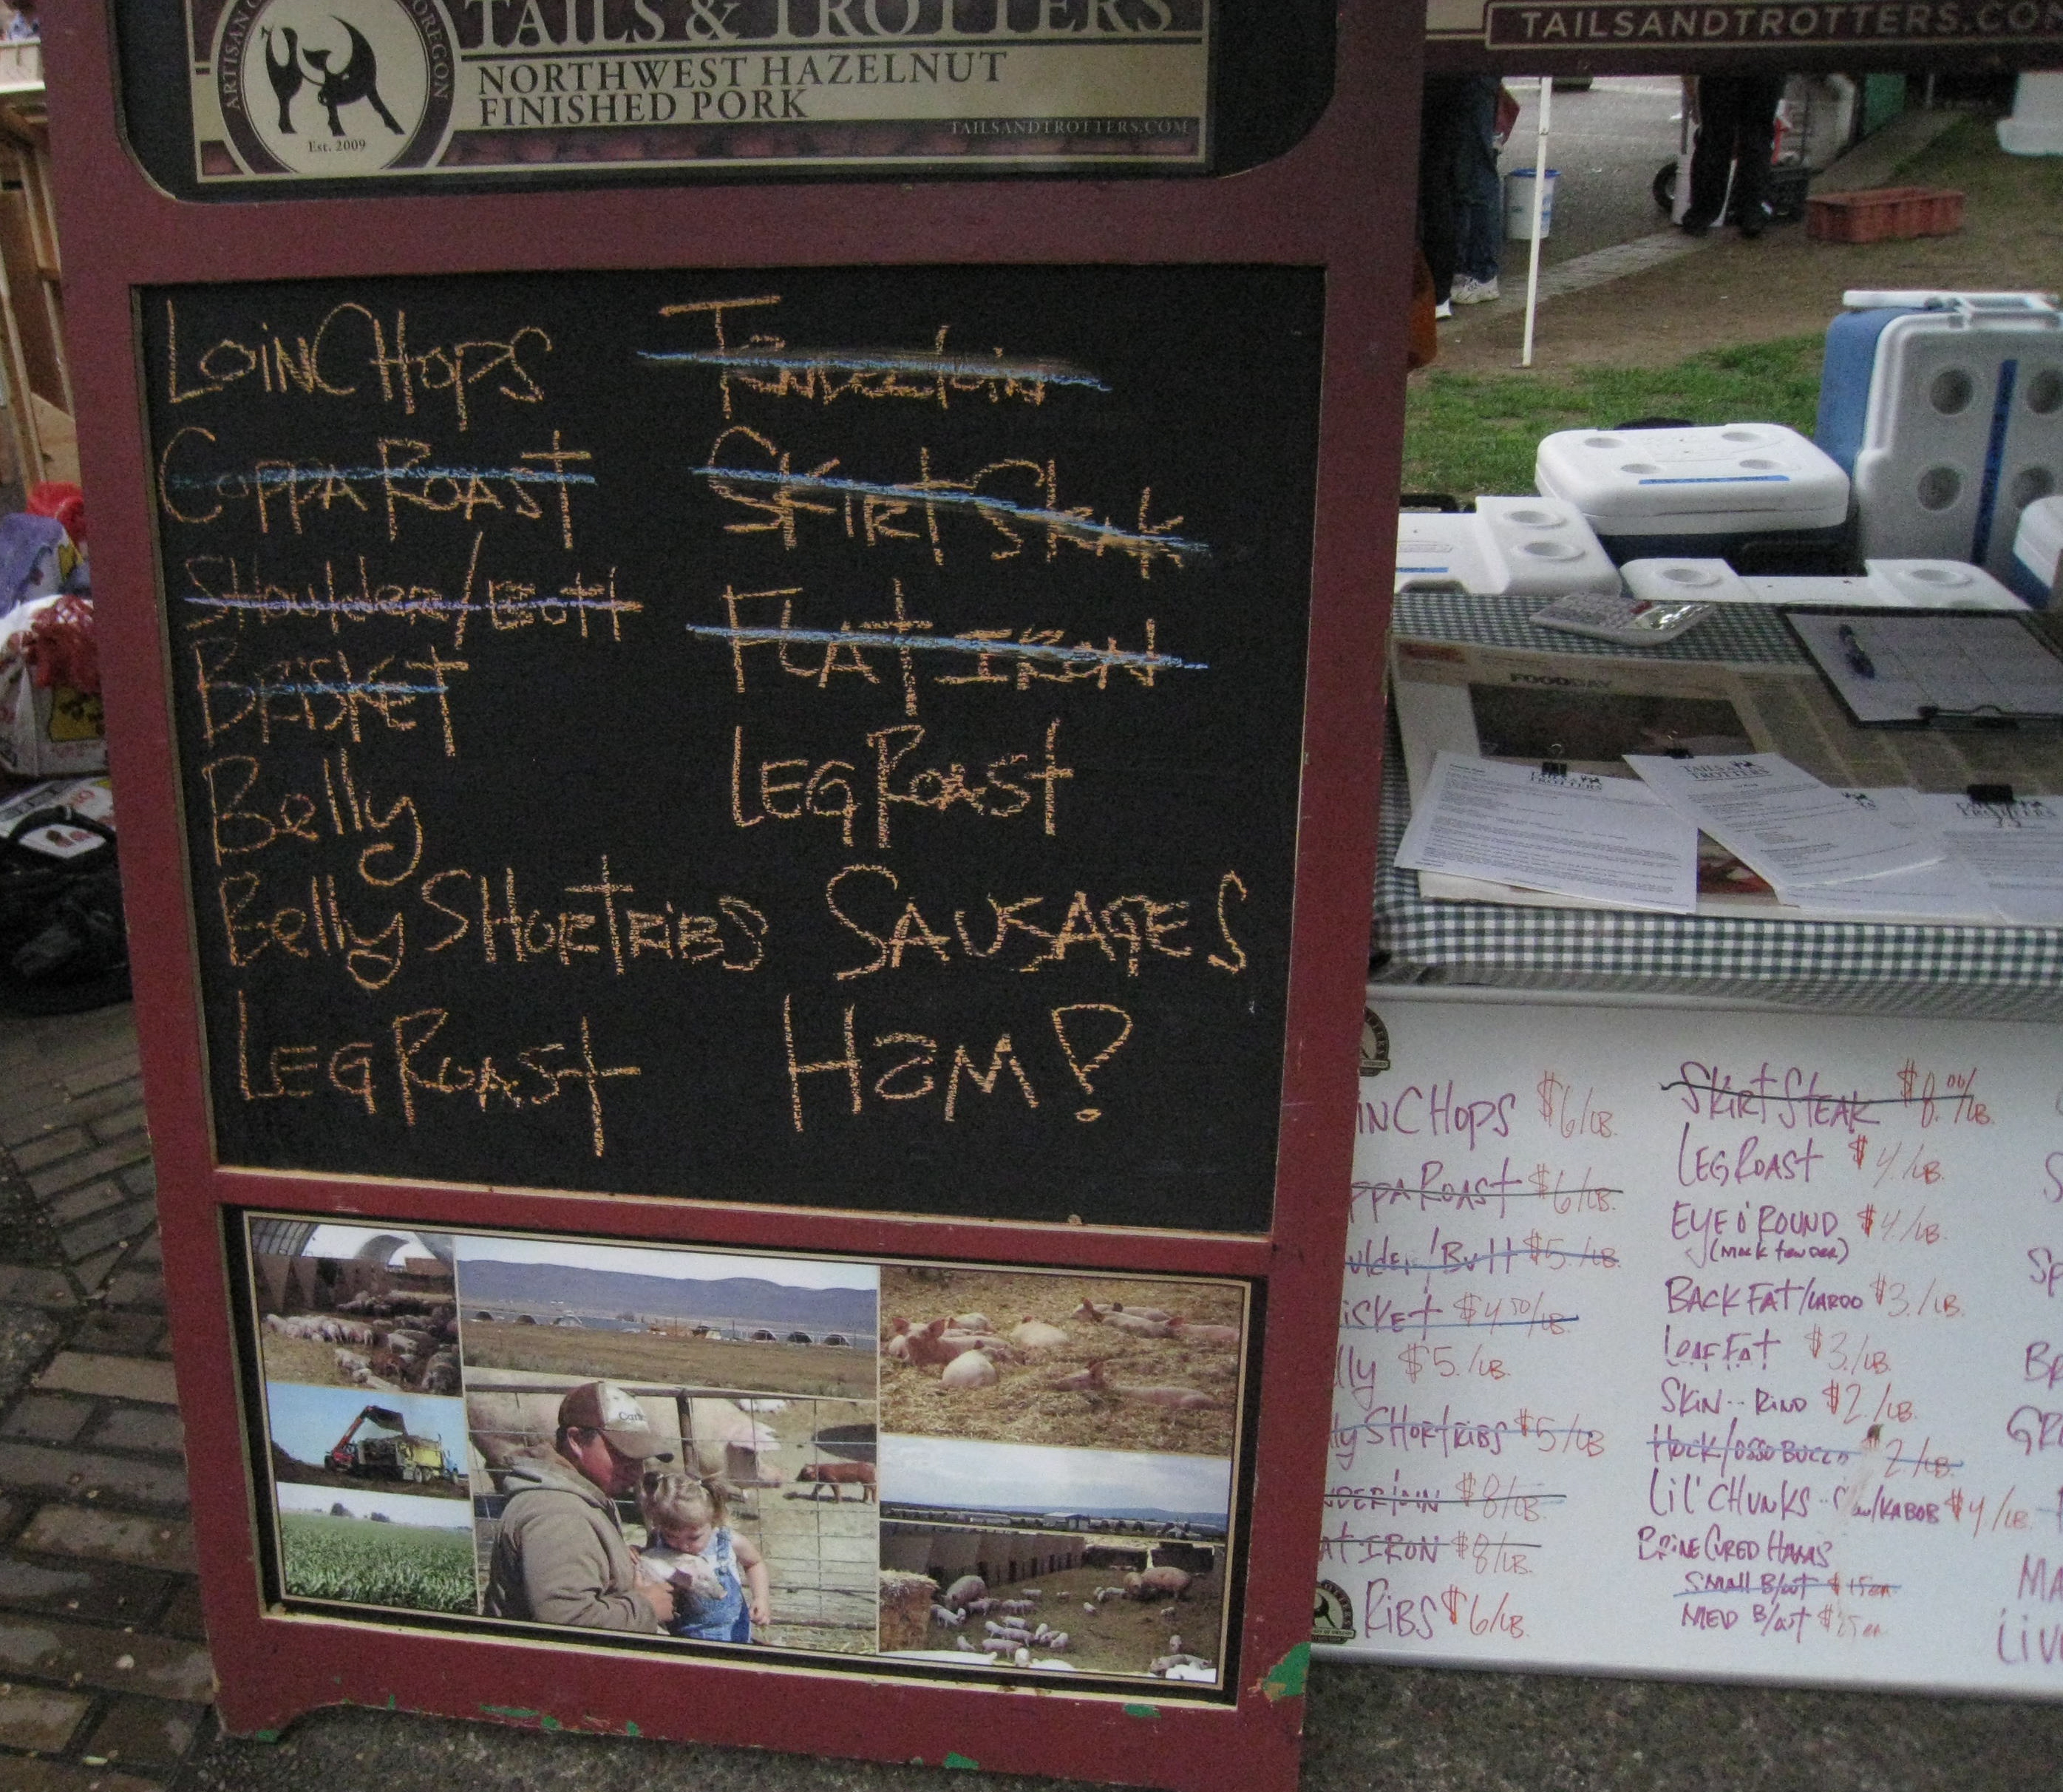 TAILS & TROTTERS
NORTHWEST HAZELNUT
FINISHED PORK
TAILSANDTROTTERS.COM
ARTISAN
OREGON
Est. 2009
TAILSANDTROTTERS.CO
LOINCHOPS
COPPA ROAST
SHOULDER/BUTT
BRISKET
Belly
Belly SHORTRIBS
LEG ROAST
TENDERloin
SKIRT Steak
FLAT IRON
LEG ROAST
SAUSAGES
HaM!
FOODDAY
TAILS & TROTTERS
INCHOPS $6/LB.
PPA ROAST $6/LB.
ulder/Butt $5./LB.
ISKET $4.50/LB.
lly $5./LB.
ly SHORTRIBS $5/LB
NDERloin $8/LB.
AT IRON $8/LB.
RIBS $6/LB.
SKIRT STEAK $8.00/LB.
LEG ROAST $4./LB.
EYE O' ROUND $4/LB.
BACK FAT/LARDO $3./LB.
LEAF FAT $3./LB.
SKIN·· RIND $2./LB.
HOCK/OSSO BUCCO 2./LB.
Lil' CHUNKS /KABOB $4/LB.
BRINE CURED HAMS
SMALL B/out $15ea
MED B/out $25ea